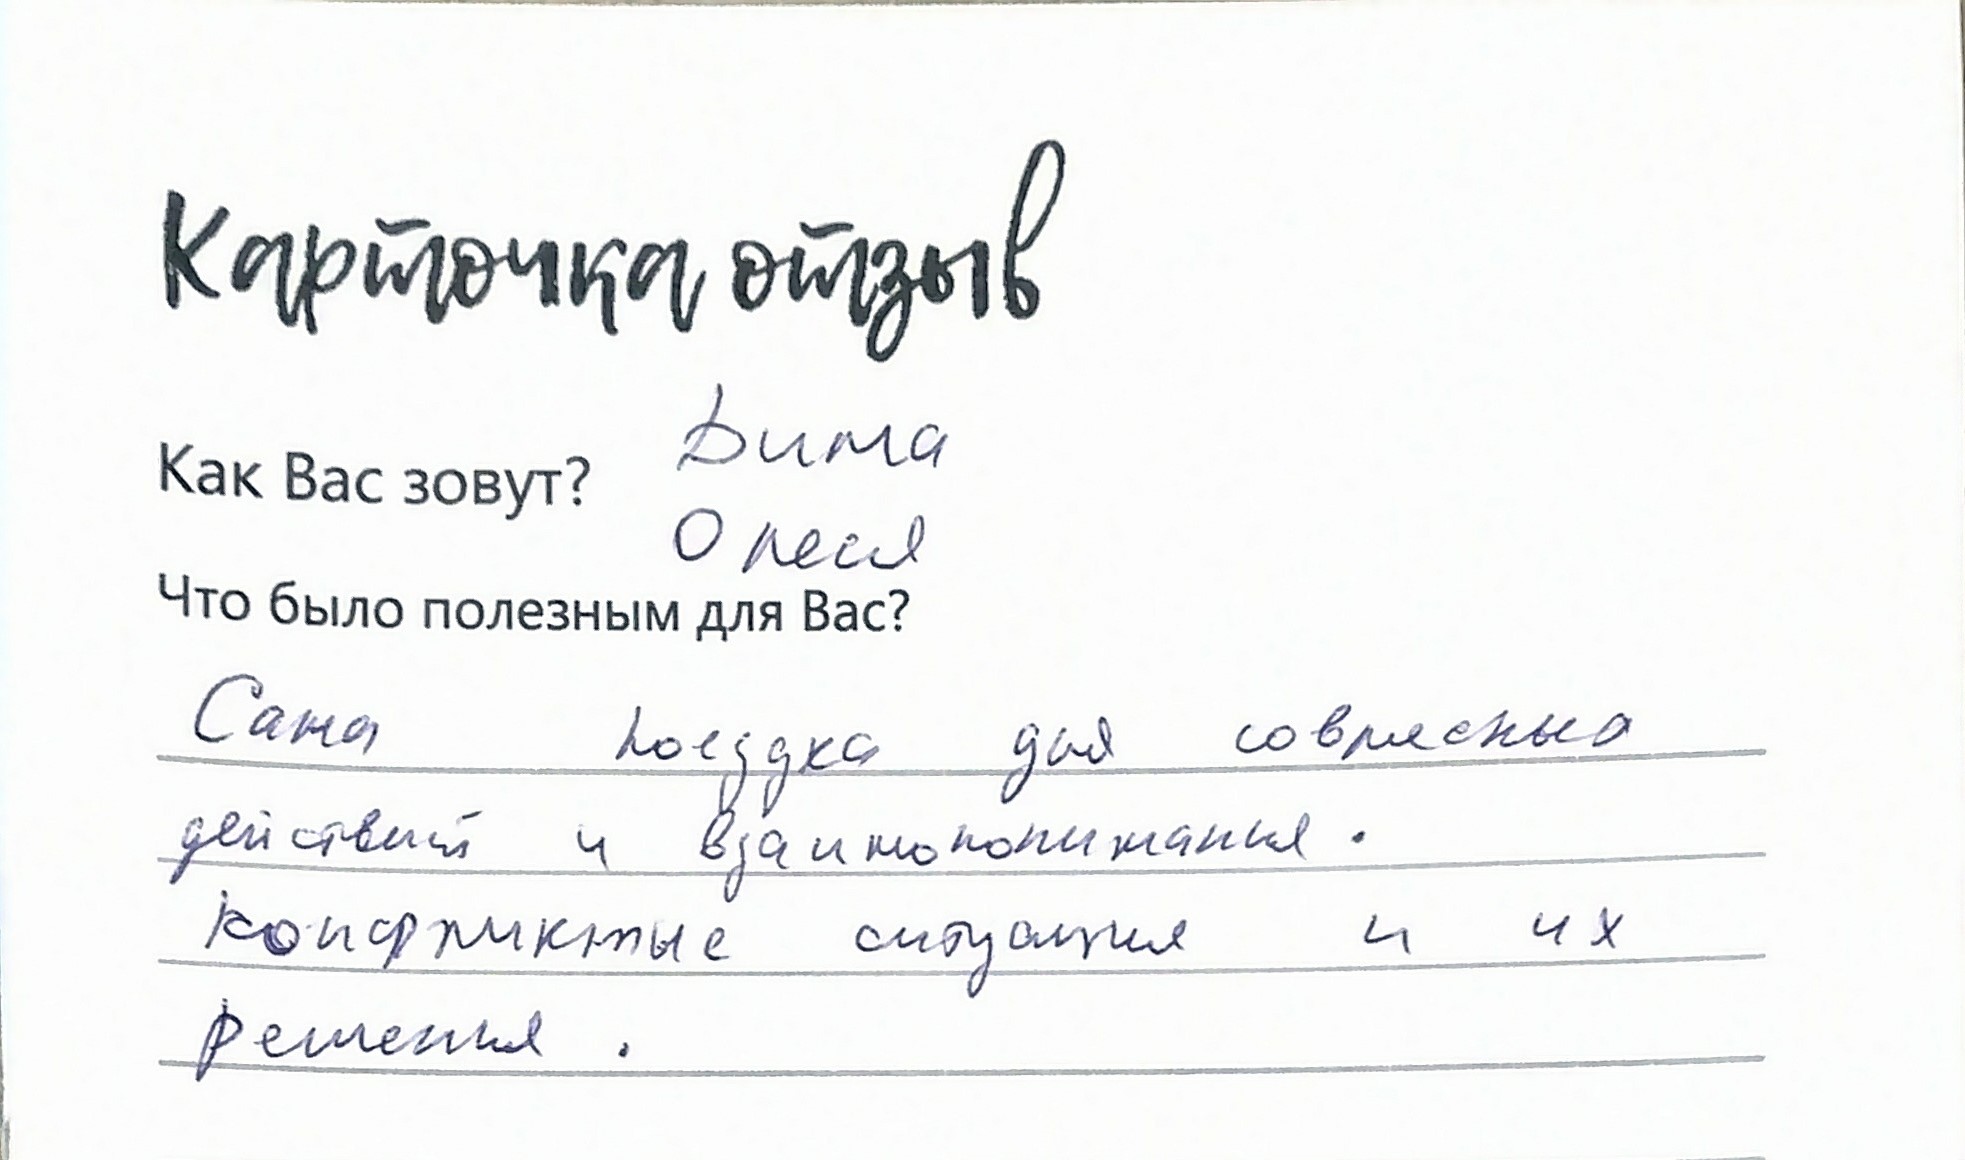 Карточка отзыв
Как Вас зовут? Дима
Олеся
Что было полезным для Вас?
Сама поездка для
действий и взаимопонимания.
Конфликтные ситуация и их
решения.